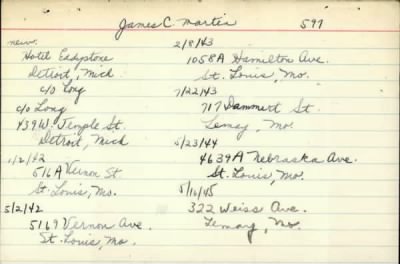 James C. Martin 597
new.
Hotel Eddystone
Detroit, Mich
c/o Long
c/o Long
439 W. Temple St.
Detroit, Mich
1/2/42
516A Vernon St
St. Louis, Mo.
5/2/42
5169 Vernon Ave.
St. Louis, Mo.
2/8/43
1058A Hamilton Ave.
St. Louis, Mo.
7/22/43
717 Dammert St.
Lemay, Mo.
5/23/44
4639A Nebraska Ave.
St. Louis, Mo.
5/16/45
322 Weiss Ave.
Lemay, Mo.